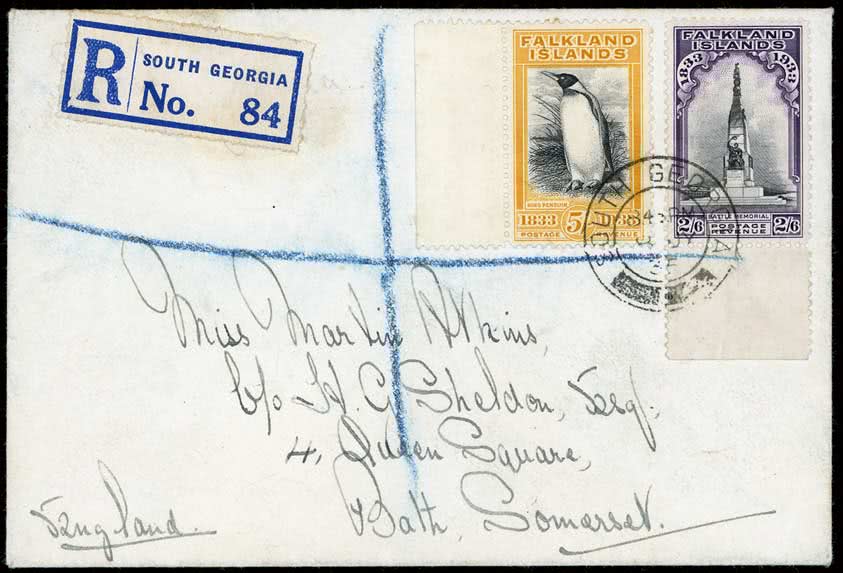 R SOUTH GEORGIA
No. 84
FALKLAND
ISLANDS
KING PENGUIN
1833 5/- 1933
POSTAGE REVENUE
FALKLAND
ISLANDS
1833 1933
BATTLE MEMORIAL
2/6 POSTAGE 2/6
REVENUE
SOUTH GEORGIA
Miss Martin Atkins,
c/o H. G. Sheldon, Esq.,
4, Queen Square,
Bath, Somerset.
England.